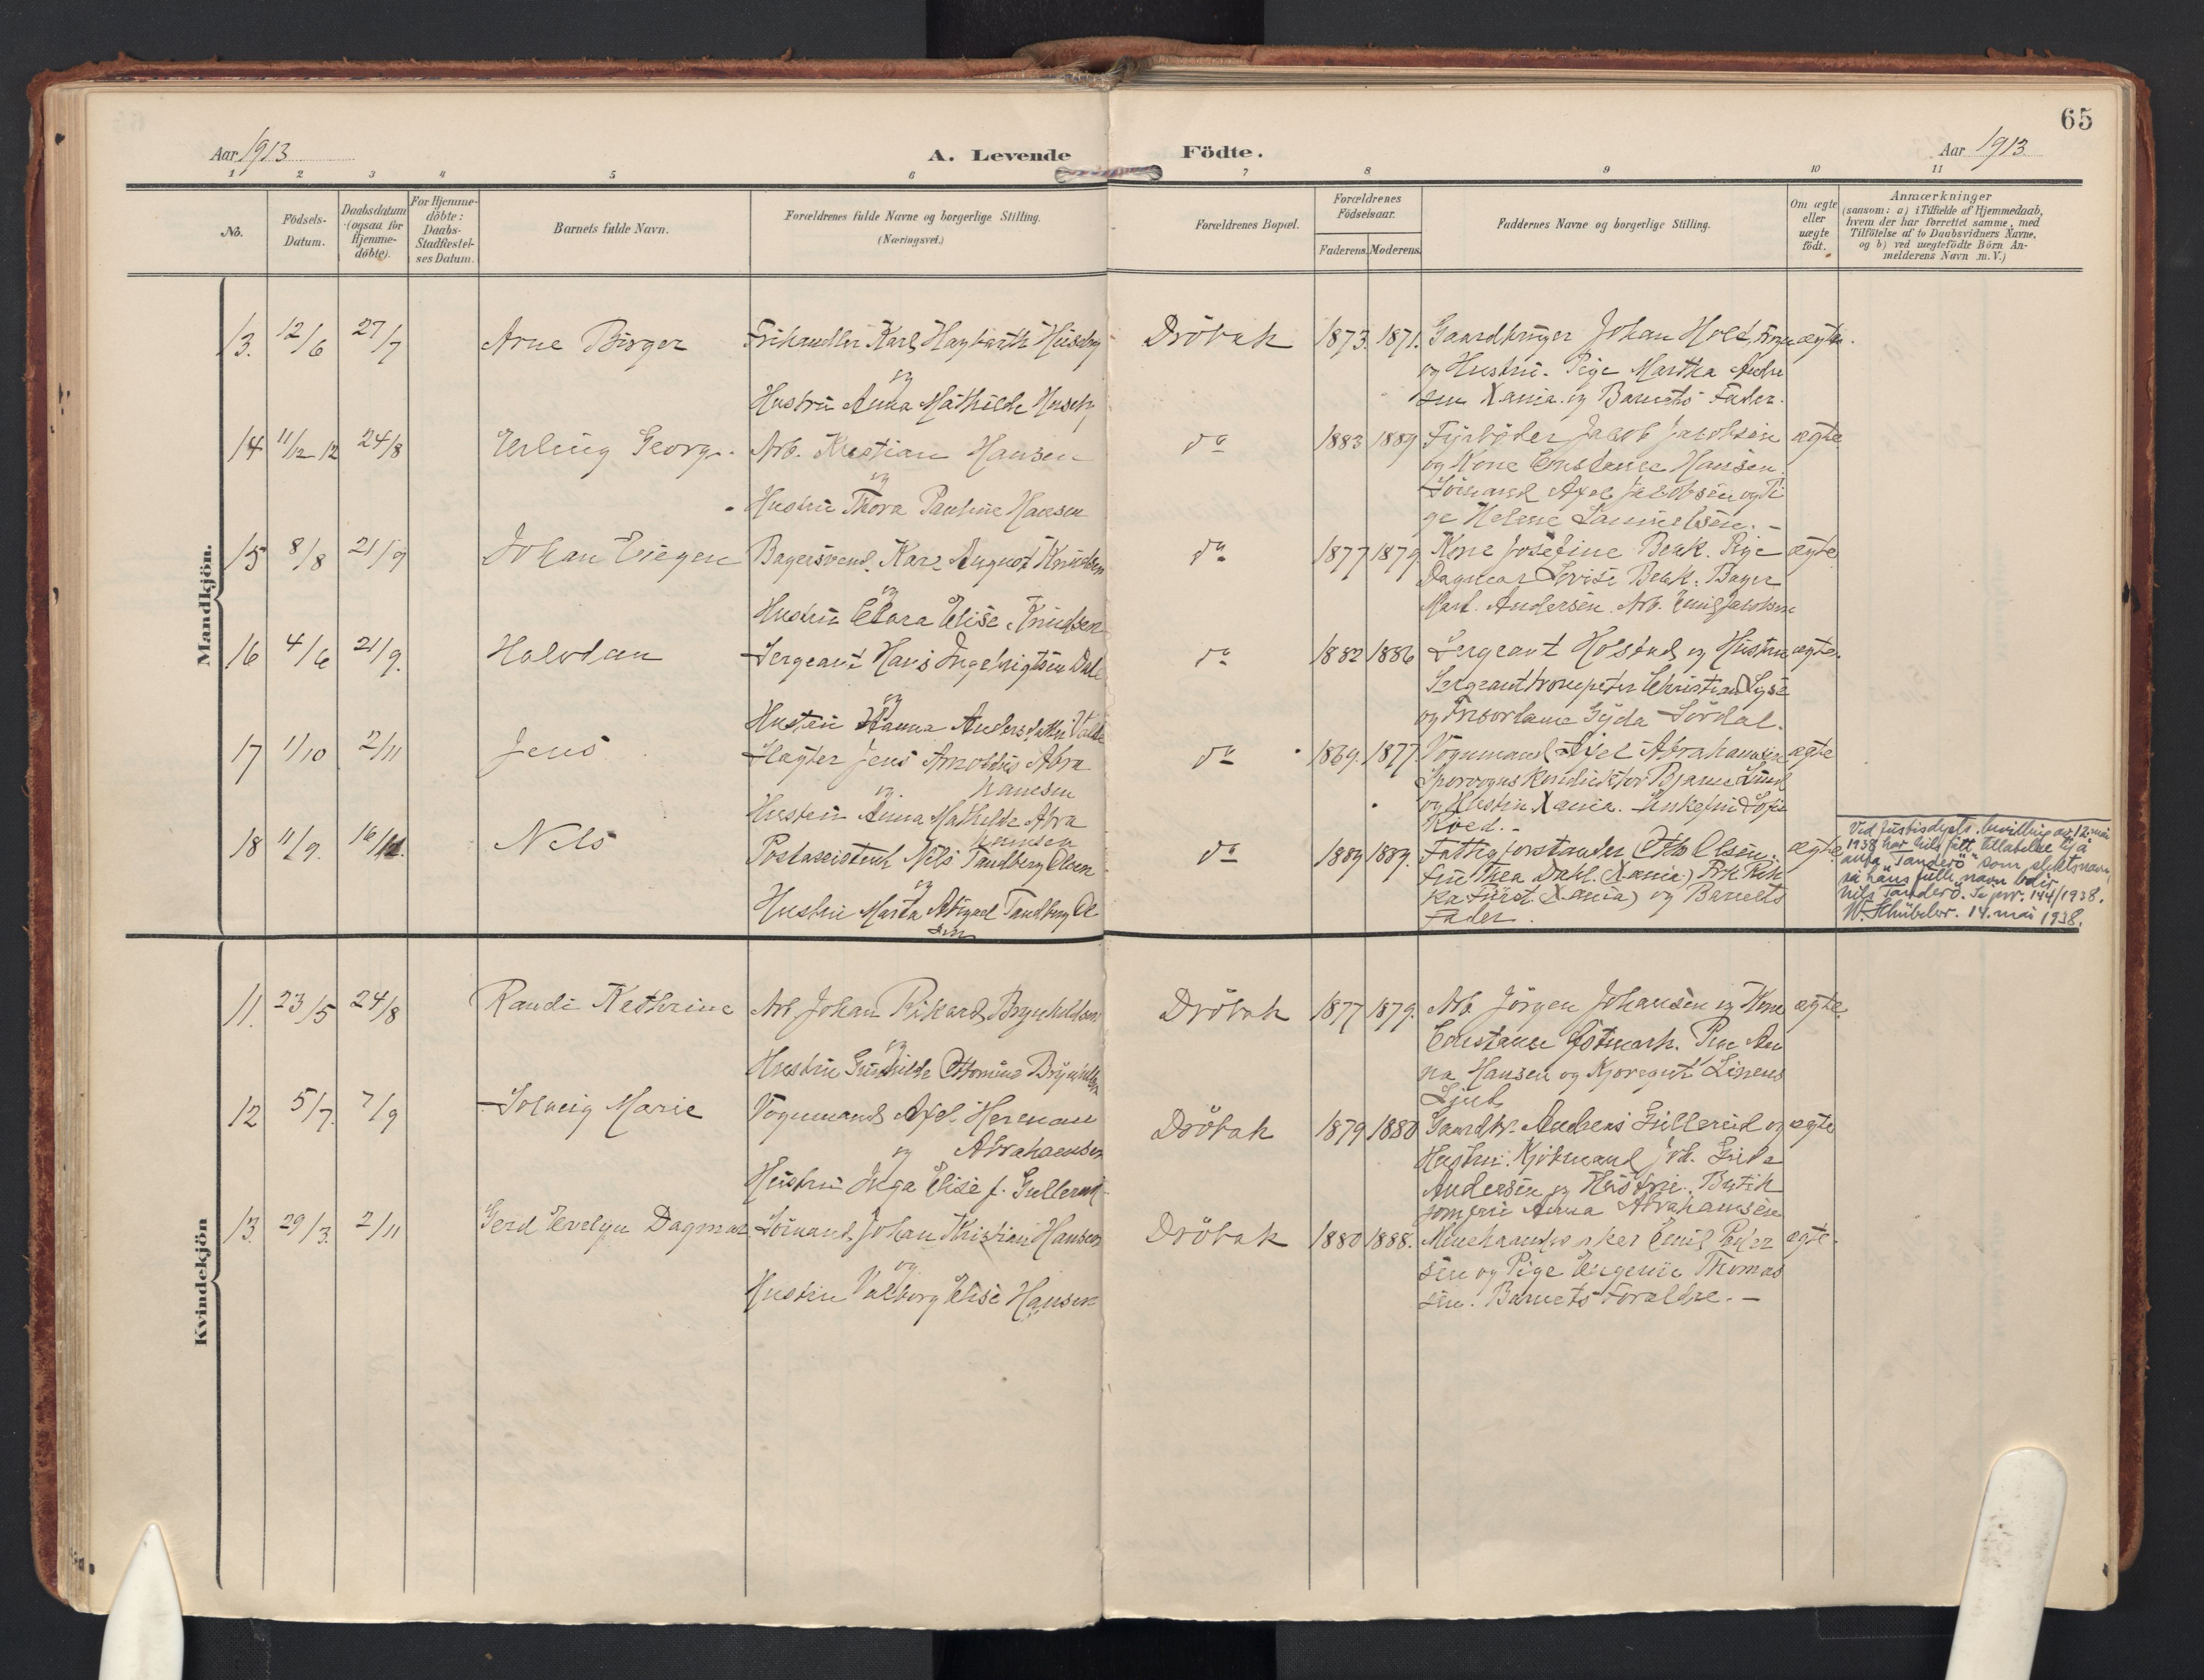 65
Aar 1913
A. Levende Födte.
Aar 1913
1 2 3 4 5 6 7 8 9 10 11
No.
Födsels-
Datum.
Daabsdatum
(ogsaa for
Hjemme-
döbte).
For Hjemme-
döbte:
Daabs-
Stadfæstel-
ses Datum.
Barnets fulde Navn.
Forældrenes fulde Navne og borgerlige Stilling.
(Næringsvei.)
Forældrenes Bopæl.
Forældrenes
Födselsaar.
Faderens. Moderens.
Faddernes Navne og borgerlige Stilling.
Om ægte
eller
uægte
födt.
Anmærkninger
(saasom: a) i Tilfælde af Hjemmedaab,
hvem der har forrettet samme, med
Tilföielse af to Daabsvidners Navne,
og b) ved uægtefödte Börn An-
melderens Navn m. V.)
Mandkjön.
13. 12/6 27/7 Arne Birger
Frihandler Karl Hagbarth Huseby
og
Hustru Anna Mathilde Huseby
Dröbak 1873. 1871.
Gaardbruger Johan Holt, ægte.
og Hustru. Pige Martha Andre
sen Xania og Barnets Fader.
14 11/12 12 24/8 Erling Georg.
Arb. Kristian Hansen
og
Hustru Thora Pauline Hansen
do 1883 1889
Fyrböder Jacob Jacobsen ægte
og Kone Constance Hansen.
Sömand Axel Jacobsen og Pi
ge Helene Samuelsen. -
15 8/8 21/9 Johan Eugen
Bagersvend. Karl August Knudsen
og
Hustru Clara Elise Knudsen
do 1877 1879
Kone Josefine Beak. Pige ægte
Dagmar Lovise Beak. Bager
Mart. Andersen. Arb. Emil Jacobsen
16 4/6 21/9. Halvdan
Sergeant Hans Ingebrigtsen
og
Hustru Hanna Andersdatter
do 1882 1886
Sergeant Holstad og Hustru ægte.
Sergeanttrompeter Christian
og Frisördame Gyda Sördal.
17 1/10 2/11 Jens
Slagter Jens Arnoldus Abra
og hamsen
Hustru Anna Mathilde Abra
hamsen
do 1869. 1877.
Vognmand Axel Abrahamsen ægte
Sporvogns Konduktör Bjarne Lund
og Hustru Xania. Enkefru Sofie
Koed. -
18 11/9. 16/11. Nils
Postassistent Nils Tandberg Olsen
og
Hustru Marta Abigael Tandberg Ol
sen
do 1889 1889.
Fattigforstander Otto Olsen. ægte
Fru Thea Dahl. (Xania) Frk Rik
ka Fürst (Xania) og Barnets
Fader.
Ved Justisdepts. bevilling av 12. mai
1938 har Nils fått tillatelse til å
anta "Tanderö" som slektsnavn,
så hans fulle navn blir
Nils Tanderö. Se jnr. 144/1938.
W. Schübeler. 14. mai 1938.
Kvindekjön
11. 23/5 24/8 Randi Kathrine
Arb. Johan Rikard Brynhildsen
og
Hustru Gunhilde Ottomine Brynhildsen
Dröbak 1877 1879.
Arb. Jörgen Johansen og Kone ægte.
Constance Östmark. Pige An
na Hansen og Linens
12 5/7. 7/9 Solveig Marie
Vognmand Axel Herman
og Abrahamsen
Hustru Inga Elise f. Gullerud
Dröbak 1879 1880
Gaardbr. Andreas Gullerud og ægte
Hustru. Kjöbmand Joh.
Andersen og Hustru. Butik
jomfru Anna Abrahamsen
13. 29/3. 2/11 Gerd Evelyn Dagmar
Sömand Johan Kristian Hansen
og
Hustru Valborg Elise Hansen
Dröbak 1880 1888.
Minehaandverker Emil Peder ægte.
sen og Pige Eugenie Thomas
sen. Barnets Foraldre. -